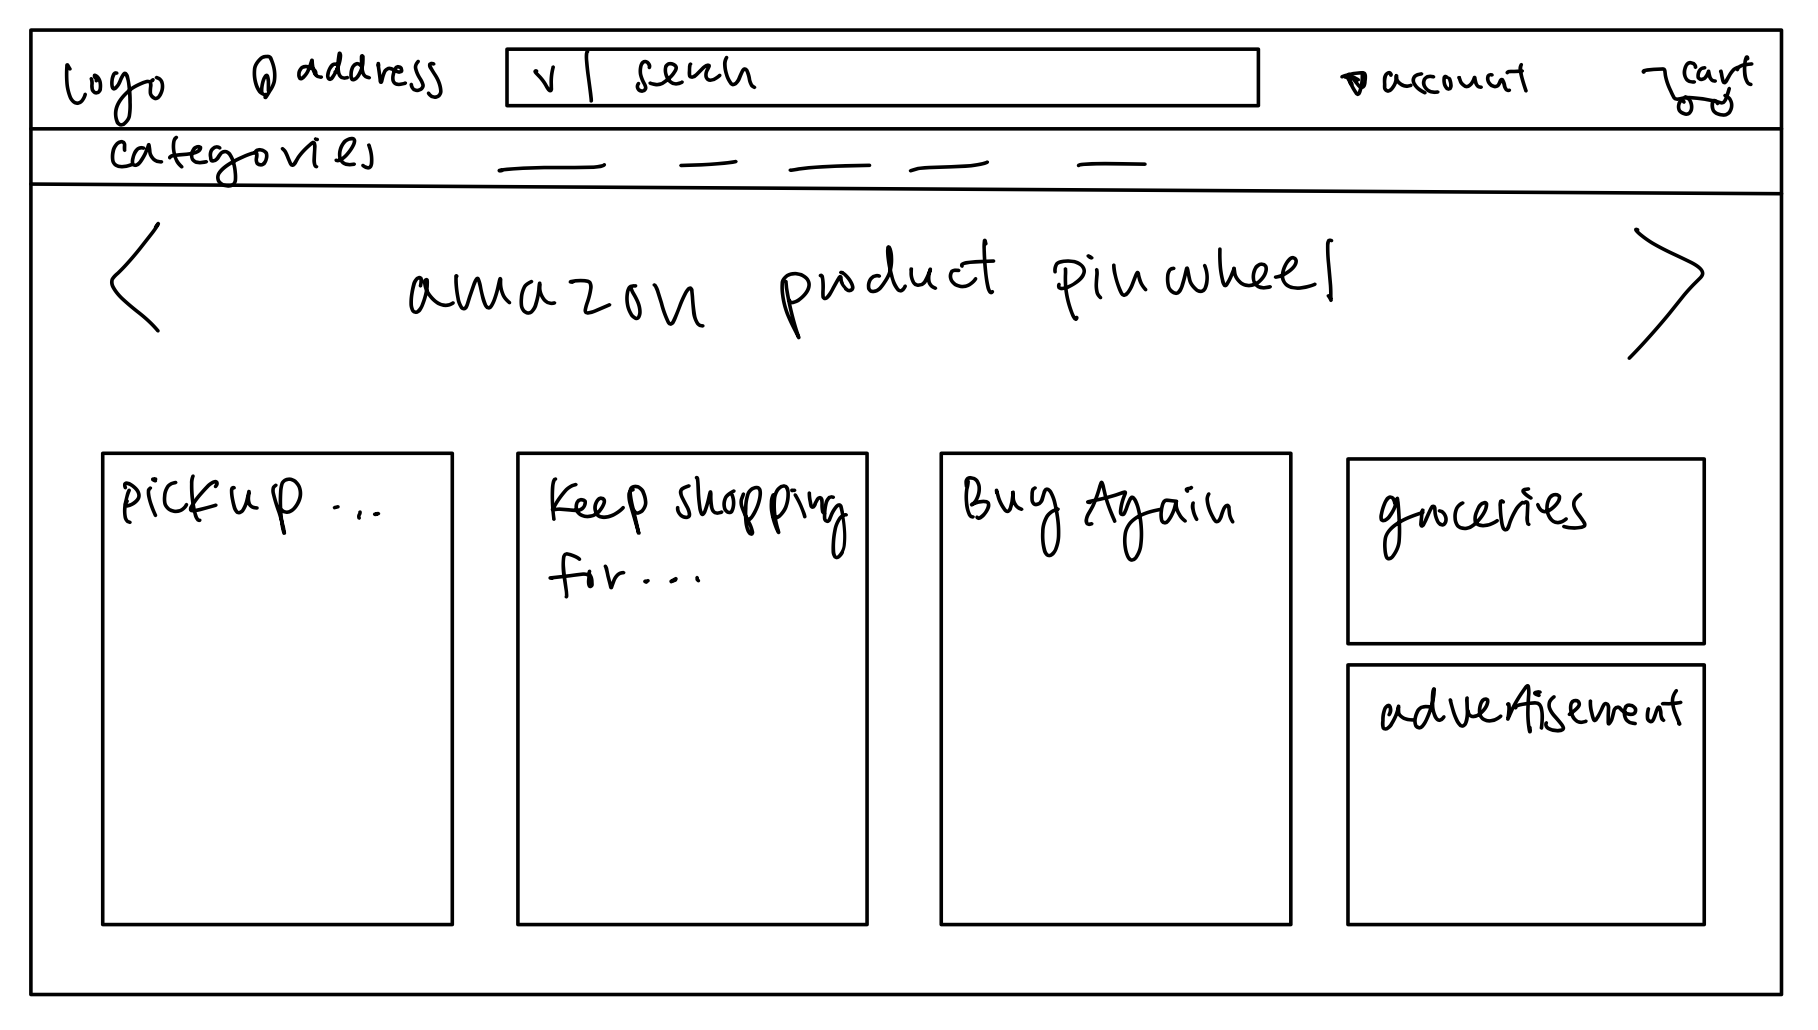 logo address v serch account cart
categories
amazon product pinwheel
pickup ...
Keep shopping
for ...
Buy Again
groceries
advertisement